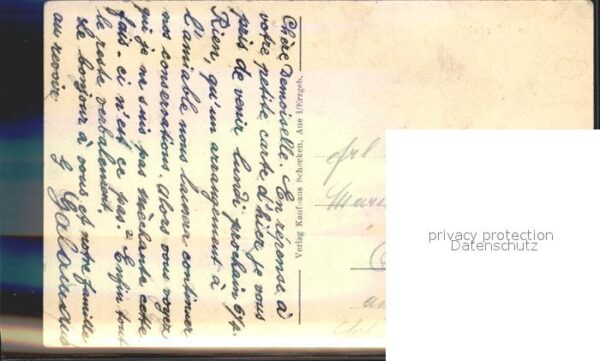 Chère Demoiselle. En réponse à
votre petite carte d'hier je vous
prie de venir lundi prochain 6/4.
Rien, qu'un arrangement à
l'amiable nous laissera continuer
nos conversations. Alors vous voyez
que je ne suis pas méchante cette
fois-ci n'est ce pas? Enfin tout
le reste verbalement.
Le bonjour à vous et votre famille
au revoir
G
Verlag Kaufhaus Schocken, Aue i/Erzgeb.
Frl
privacy protection
Datenschutz